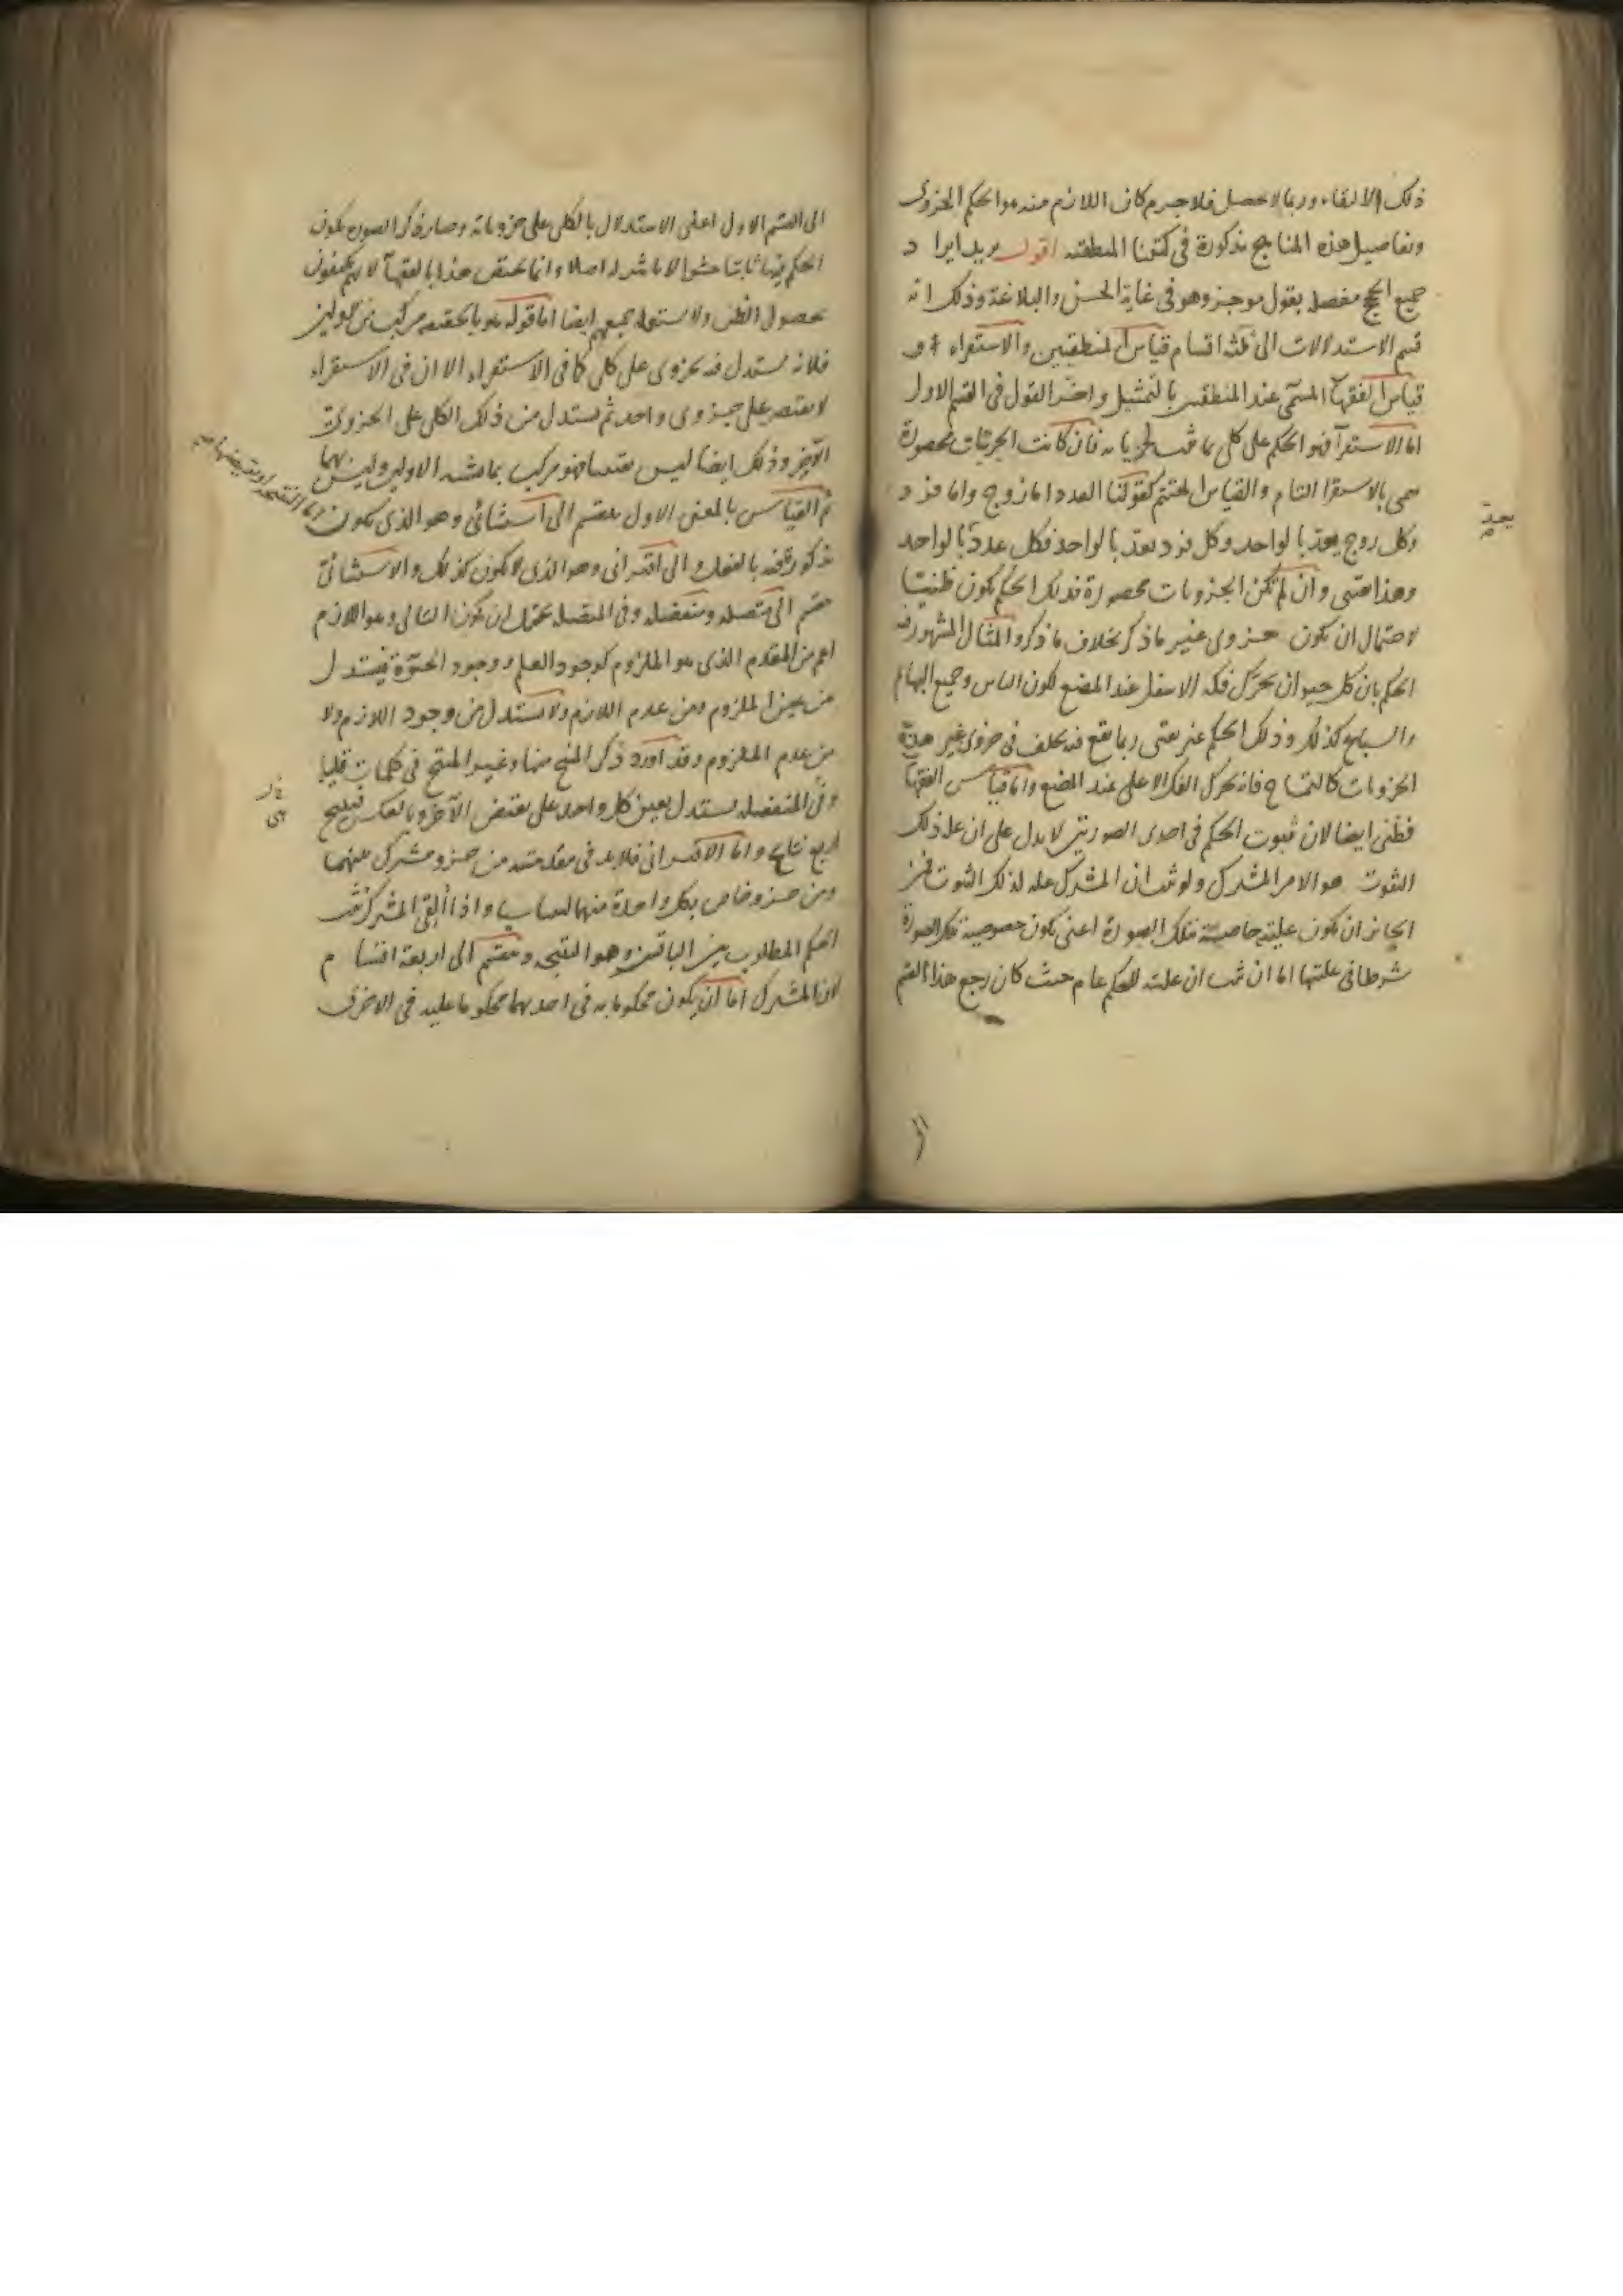 ذلك الالتقاء وربما لا يحصل فلا جرم كان اللازم منه هو الحكم الجزوى
وتفاصيل هذه المناهج مذكورة فى كتبنا المنطقية اقول يريد ايراد
جميع الحجج مفصلة بقول موجز وهو فى غاية الحسن والبلاغة وذلك انه
قسم الاستدلالات الى ثلثة اقسام قياس المنطقيين والاستقراء و
قياس الفقهآ المسمى عند المنطقيين بالتمثيل واخر القول فى القسم الاول
اما الاستقرآ فهو الحكم على كلى بما ثبت لجزياته فان كانت الجزئيات محصورة
سمى بالاستقرا التام والقياس المقسم كقولنا العدد اما زوج واما فرد
وكل زوج يعد بالواحد وكل فرد يعد بالواحد فكل عدد يعد بالواحد
وهذا يقينى وان لم تكن الجزويات محصورة فذلك الحكم يكون ظنيا
لاحتمال ان يكون جزوى غير ما ذكر بخلاف ما ذكر والمثال المشهور فيه
الحكم بان كل حيوان يحرك فكه الاسفل عند المضغ لكون الناس وجميع البهائم
والسباع كذلك وذلك الحكم غير يقينى ربما يقع فيه تخلف فى جزوى غير هذه
الجزويات كالتمساح فانه يحرك الفك الاعلى عند المضغ واما قياس الفقهآ
فظنى ايضا لان ثبوت الحكم فى احدى الصورتين لا يدل على ان علة ذلك
الثبوت هو الامر المشترك ولو ثبت ان المشترك علة لذلك الثبوت فمن
الجائز ان يكون عليته خاصية بتلك الصورة اعنى يكون خصوصية تلك الصورة
شرطا فى عليتها اما ان ثبت ان عليته للحكم عام حيث كان رجع هذا القسم
يعد
الى القسم الاول اعنى الاستدلال بالكلى على جزوياته وصار ذكر الصورة يكون
الحكم فيها ثابتا حشوا لا تاثير له اصلا وانما يختص هذا بالفقهآ لانهم يكتفون
بحصول الظن ولا يستعمله جميعهم ايضا اما قوله هو بالحقيقة مركب من الاولين
فلانه يستدل فيه بجزوى على كلى كما فى الاستقراء الا ان فى الاستقراء
لا يقتصر على جزوى واحد ثم يستدل من ذلك الكلى على الجزوى
الآخر وذلك ايضا ليس بقياس فهو مركب بما يشبه الاولين وليس بهما
ثم القياس بالمعنى الاول ينقسم الى استثنائى وهو الذى يكون
مذكورة فيه بالفعل والى اقترانى وهو الذى لا يكون كذلك والاستثنائى
ينقسم الى متصلة ومنفصلة وفى المتصلة يحتمل ان يكون التالى وهو اللازم
اعم من المقدم الذى هو الملزوم كوجود العلم ووجود الحيوة فيستدل
من عين الملزوم ومن عدم اللازم ولا يستدل من وجود اللازم ولا
من عدم الملزوم وقد اورد ذكر المنتج منها وغير المنتج فى كلمات قليلة
وفى المنفصلة يستدل بعين كل واحد على نقيض الآخر وبالعكس فينتج
اربع نتايج واما الاقترانى فلا بد فى مقدمتيه من جزو مشترك بينهما
ومن جزو خاص بكل واحدة منهما ليسا به واذا ألقى المشترك ثبت
الحكم المطلوب بين الباقيين وهو النتيجة وينقسم الى اربعة اقسام
لان المشترك اما ان يكون محكوما به فى احديهما محكوما عليه فى الاخرى
فيها النتيجة او نقيضها